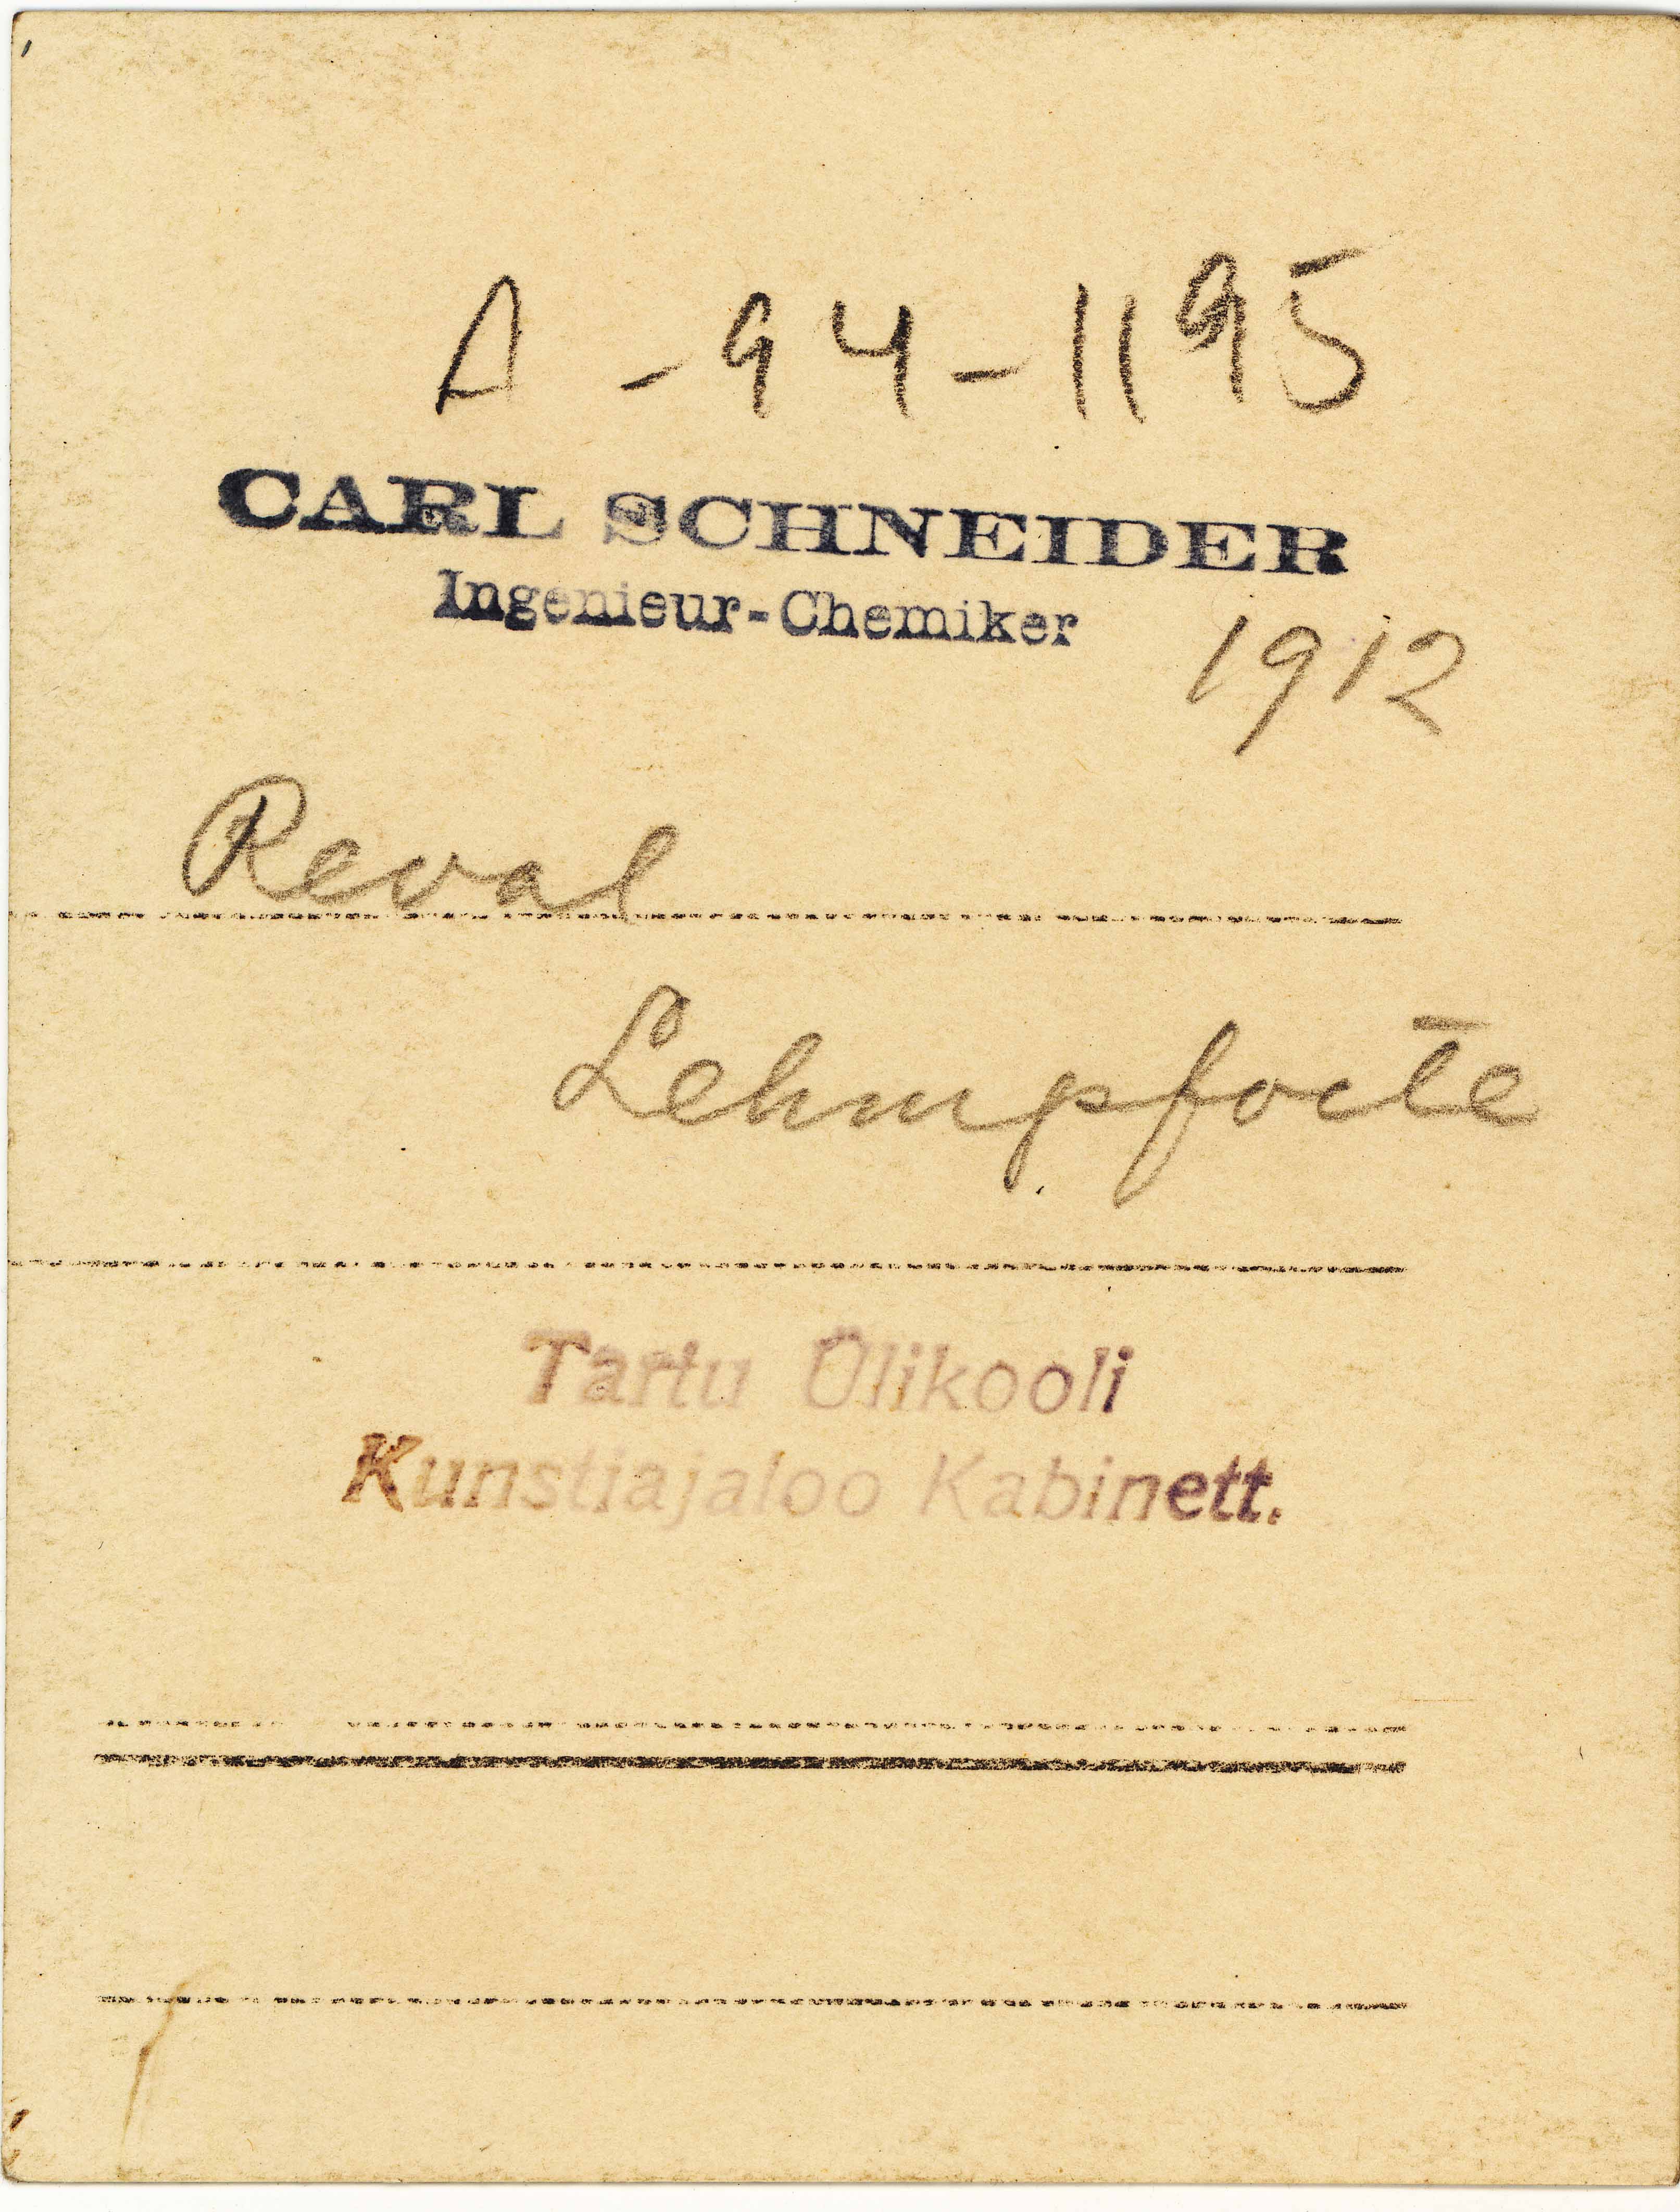 A - 94 - 1195
CARL SCHNEIDER
Ingenieur-Chemiker
1912
Reval
Lehmpforte
Tartu Ülikooli
Kunstiajaloo Kabinett.